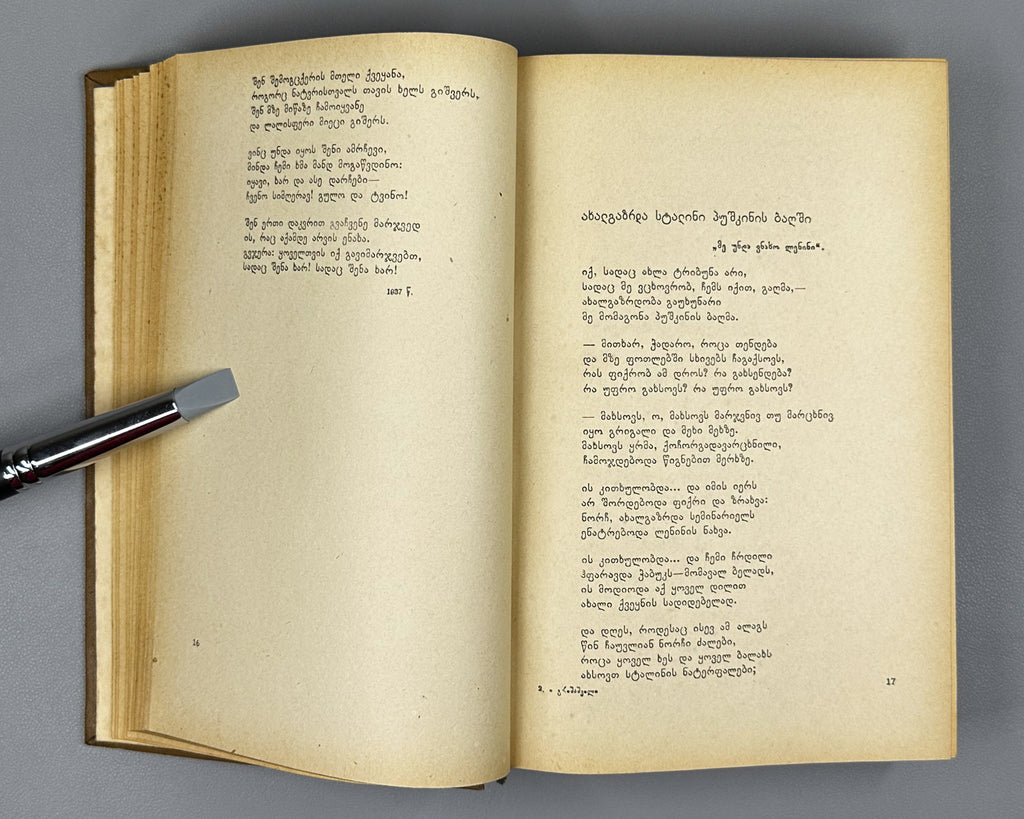 შენ შემოგცქერის მთელი ქვეყანა,
როგორც ნატვრისთვალს თავის ხელს გიშვერს,
შენ მზე მიწაზე ჩამოიყვანე
და ლალისფერი მიეცი გიშერს.
ვინც უნდა იყოს შენი ამრჩევი,
მინდა ჩემი ხმა მანდ მოგაწვდინო:
იყავი, ხარ და ასე დარჩები—
ჩვენო სიმღერავ! გულო და ტვინო!
შენ ერთი დაკვრით გვაჩვენე მარჯვედ
ის, რაც აქამდე არვის ენახა.
გვჯერა: ყოველთვის იქ გავიმარჯვებთ,
სადაც შენა ხარ! სადაც შენა ხარ!
1937 წ.
16
ახალგაზრდა სტალინი პუშკინის ბაღში
„მე უნდა ვნახო ლენინი“.
იქ, სადაც ახლა ტრიბუნა არი,
სადაც მე ვცხოვრობ, ჩემს იქით, გაღმა,—
ახალგაზრდობა გაუხუნარი
მე მომაგონა პუშკინის ბაღმა.
— მითხარ, ჭადარო, როცა თენდება
და მზე ფოთლებში სხივებს ჩაგაქსოვს,
რას ფიქრობ ამ დროს? რა გახსენდება?
რა უფრო გახსოვს? რა უფრო გახსოვს?
— მახსოვს, ო, მახსოვს მარჯვნივ თუ მარცხნივ
იყო გრიგალი და მეხი მეხზე.
მახსოვს ყრმა, ქოჩორგადავარცხნილი,
ჩამოჯდებოდა წიგნებით მერხზე.
ის კითხულობდა... და იმის იერს
არ შორდებოდა ფიქრი და ზრახვა:
ნორჩ, ახალგაზრდა სემინარიელს
ენატრებოდა ლენინის ნახვა.
ის კითხულობდა... და ჩემი ჩრდილი
ჰფარავდა ჭაბუკს—მომავალ ბელადს,
ის მოდიოდა აქ ყოველ დილით
ახალი ქვეყნის სადიდებელად.
და დღეს, როდესაც ისევ ამ ალაგს
წინ ჩაუვლიან ნორჩი ძალები,
როცა ყოველ ხეს და ყოველ ბალახს
ახსოვთ სტალინის ნატერფალები;
2. ი გრიშაშვილი
17